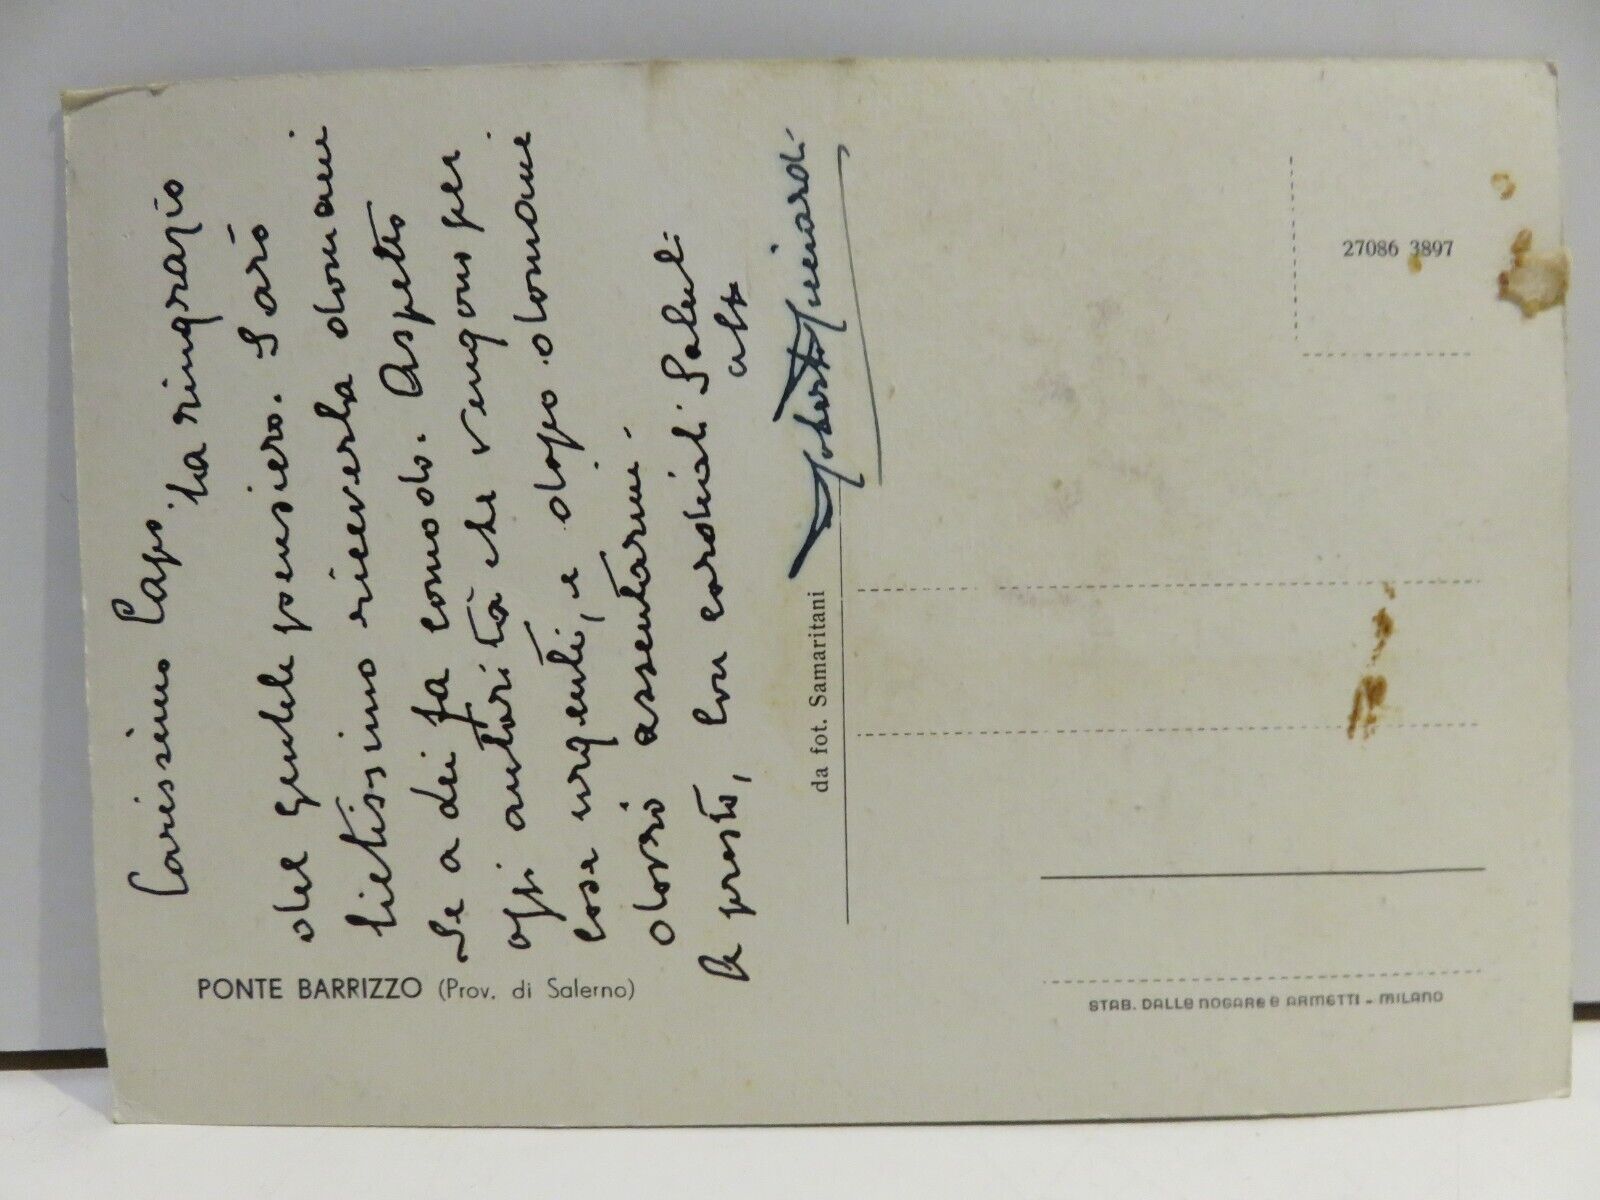 Carissimo Capo, La ringrazio
del gentile pensiero. Sarò
lietissimo riceverla domani
se a Lei fa comodo. Aspetto
oggi autorità che vengono per
cose urgenti, e dopo domani
dovrò assentarmi.
A presto, con cordiali saluti
PONTE BARRIZZO (Prov. di Salerno)
da fot. Samaritani
27086 3897
STAB. DALLE NOGARE E ARMETTI - MILANO